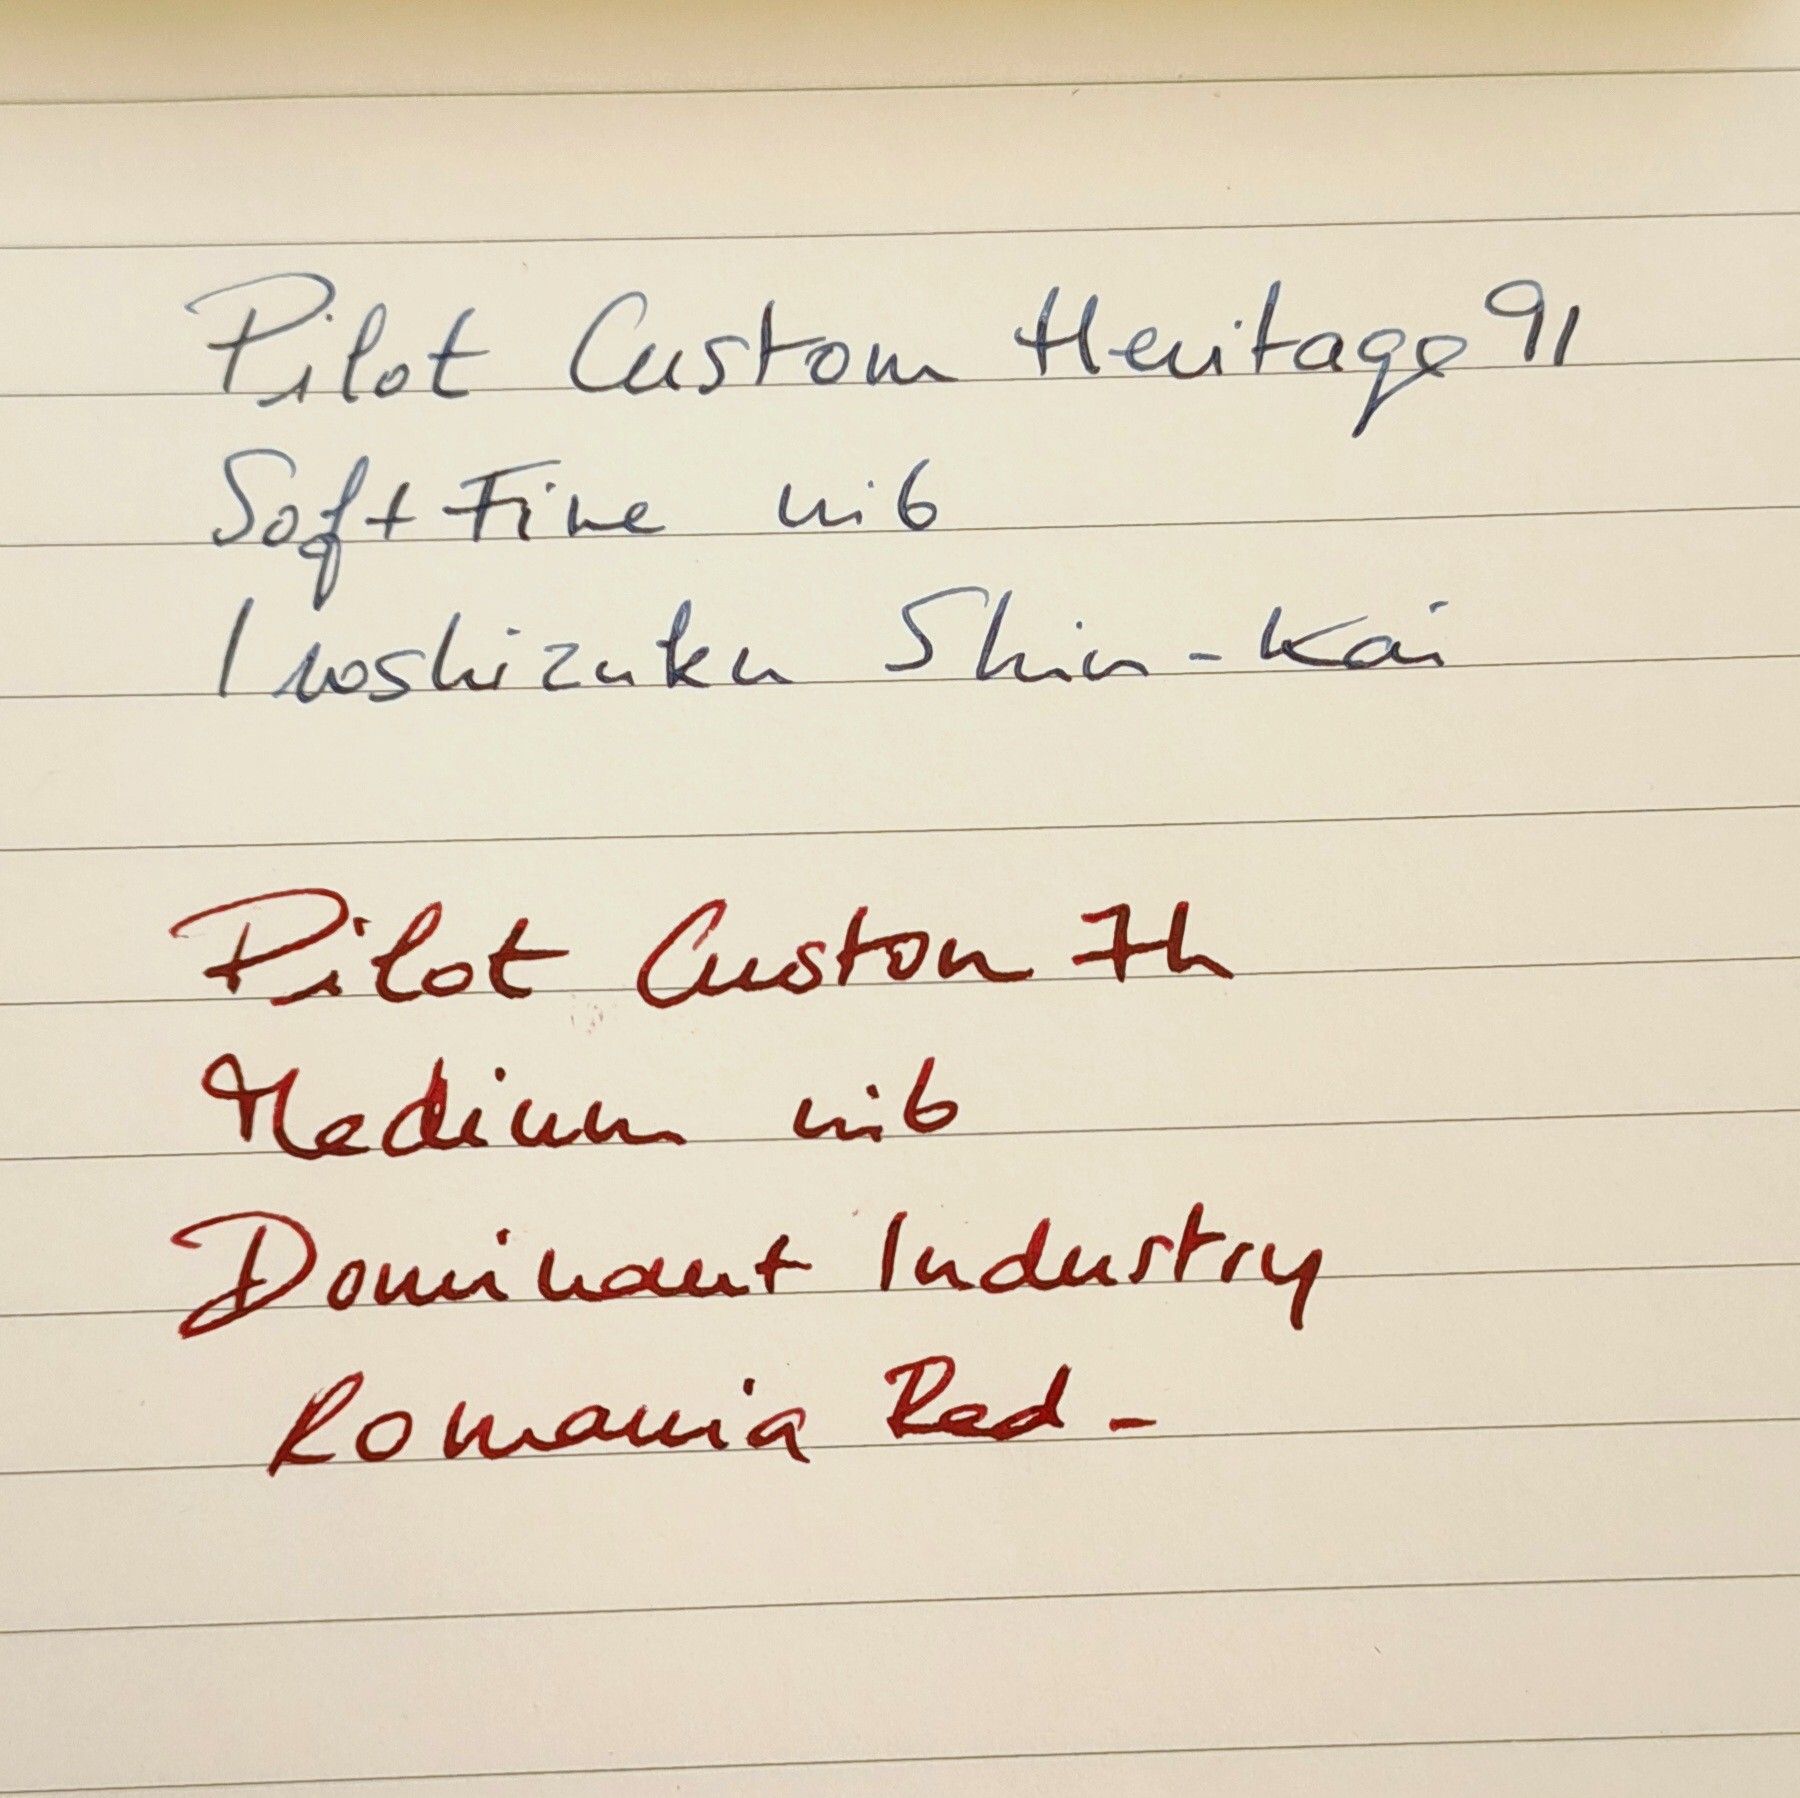 Pilot Custom Heritage 91
Soft Fine nib
Iroshizuku Shin-Kai
Pilot Custom 74
Medium nib
Dominant Industry
Romania Red -